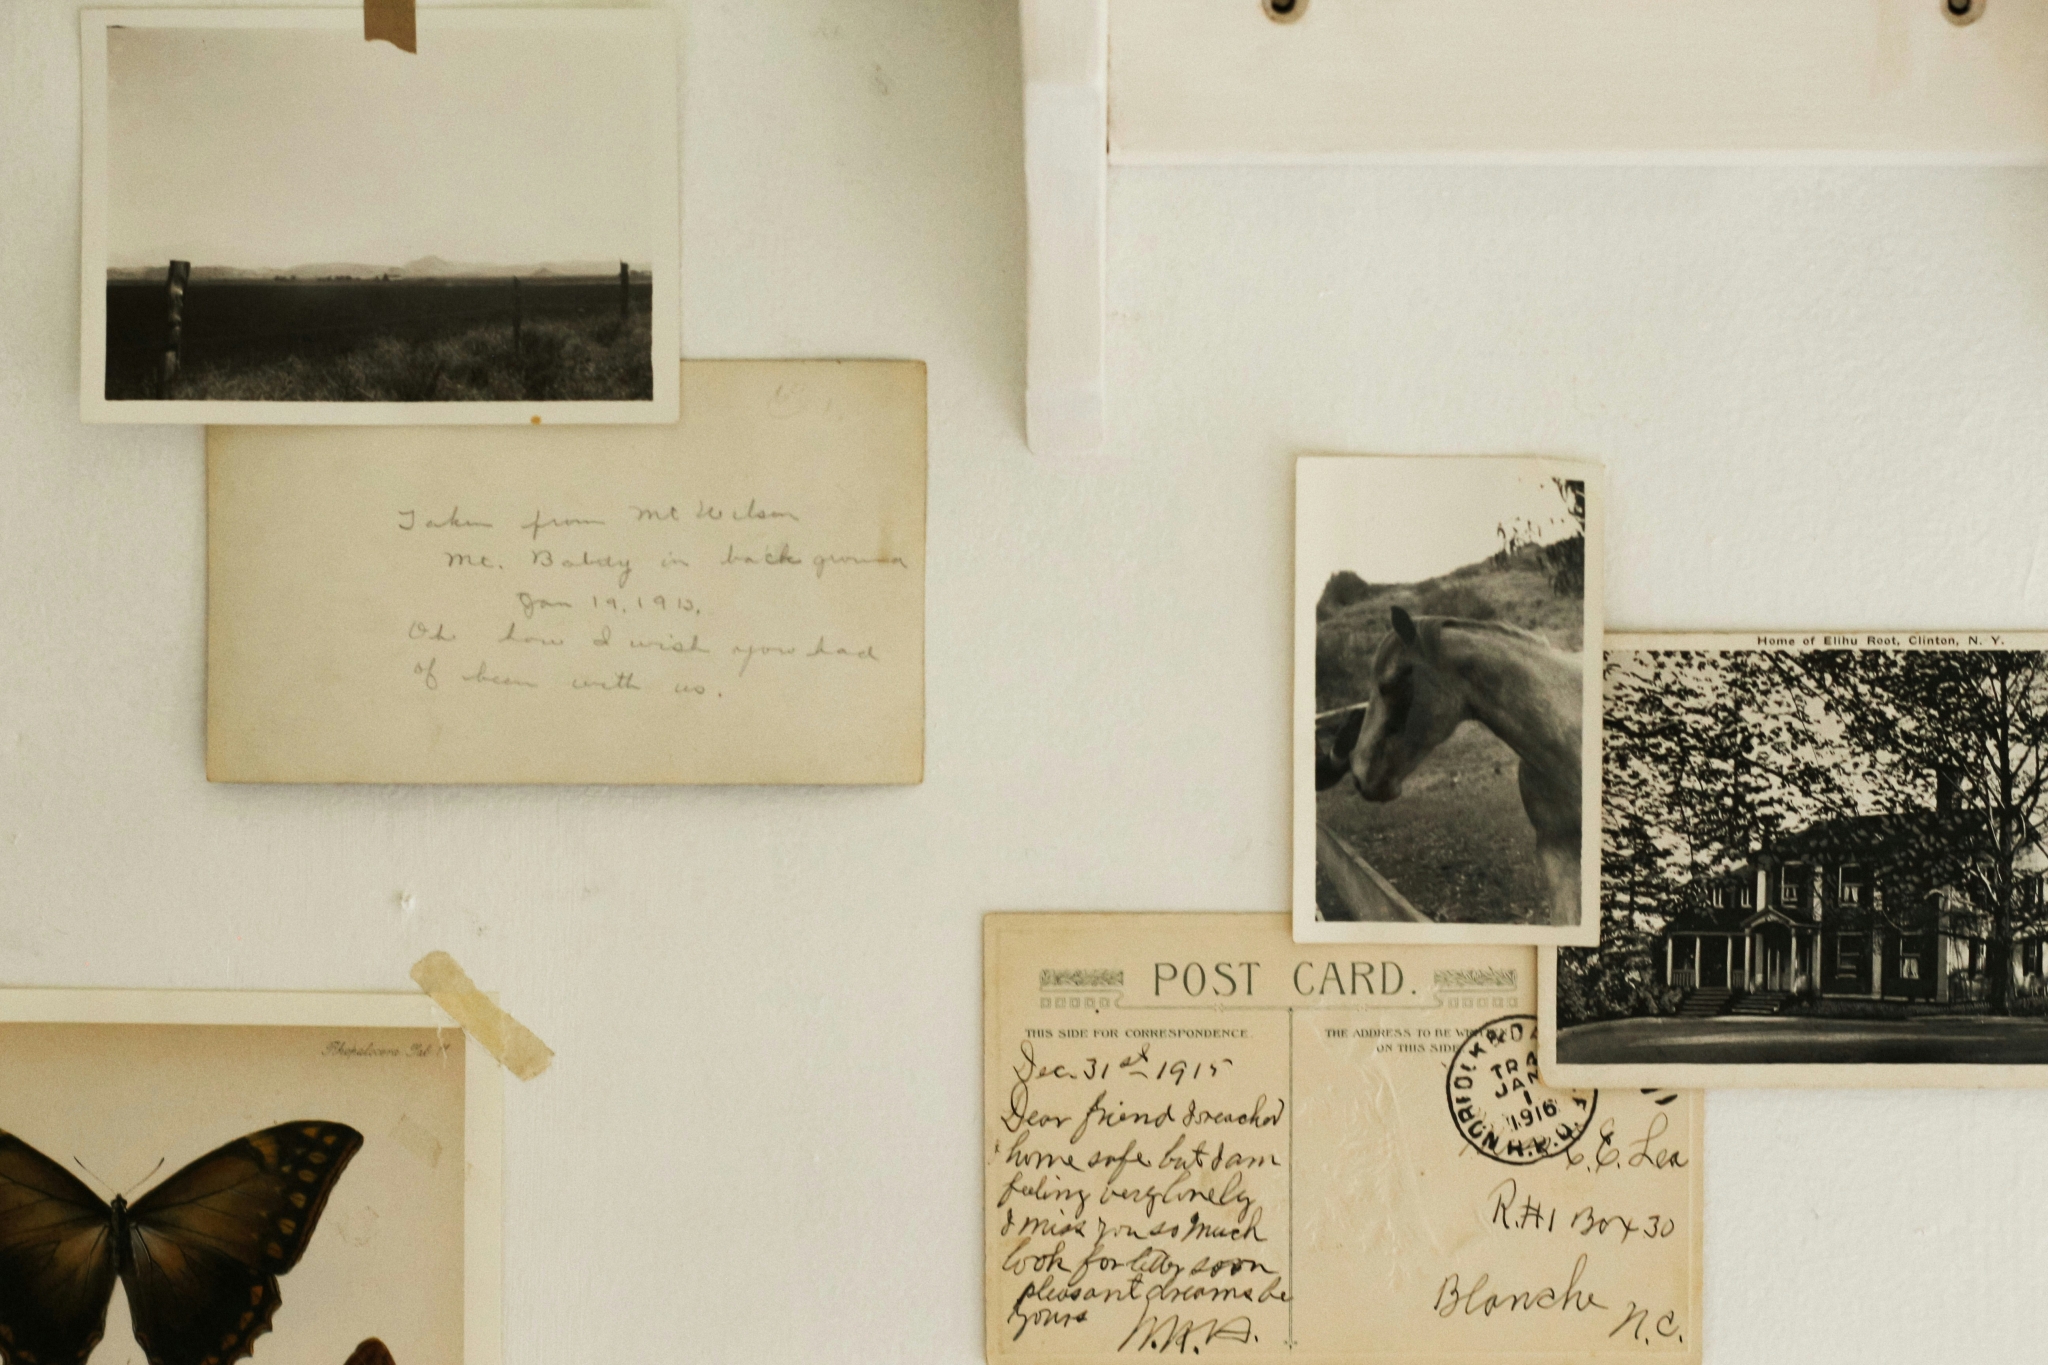 Taken from Mt Wilson
Mt. Baldy in back ground
Jan 19, 1913.
Oh how I wish you had
of been with us.
Home of Elihu Root, Clinton, N. Y.
POST CARD.
THIS SIDE FOR CORRESPONDENCE.
THE ADDRESS TO BE
ON THIS SIDE
Dec. 31st 1915
Dear friend I reached
home safe but I am
feeling very lonely
I miss you so much
look for letter soon
pleasant dreams be
yours
TR
JAN
1
1916
R.P.O.
C. E. Lea
R.#1 Box 30
Blanche
N.C.